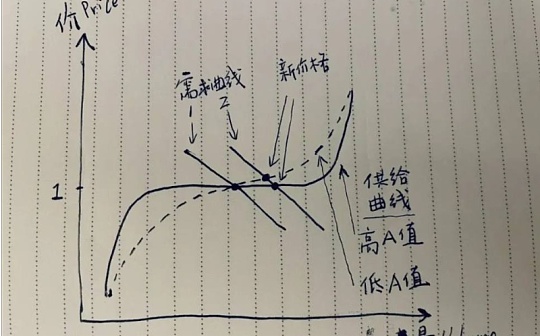 价Price
需求曲线
1 2
新价格
1
供给
曲线
高A值
低A值